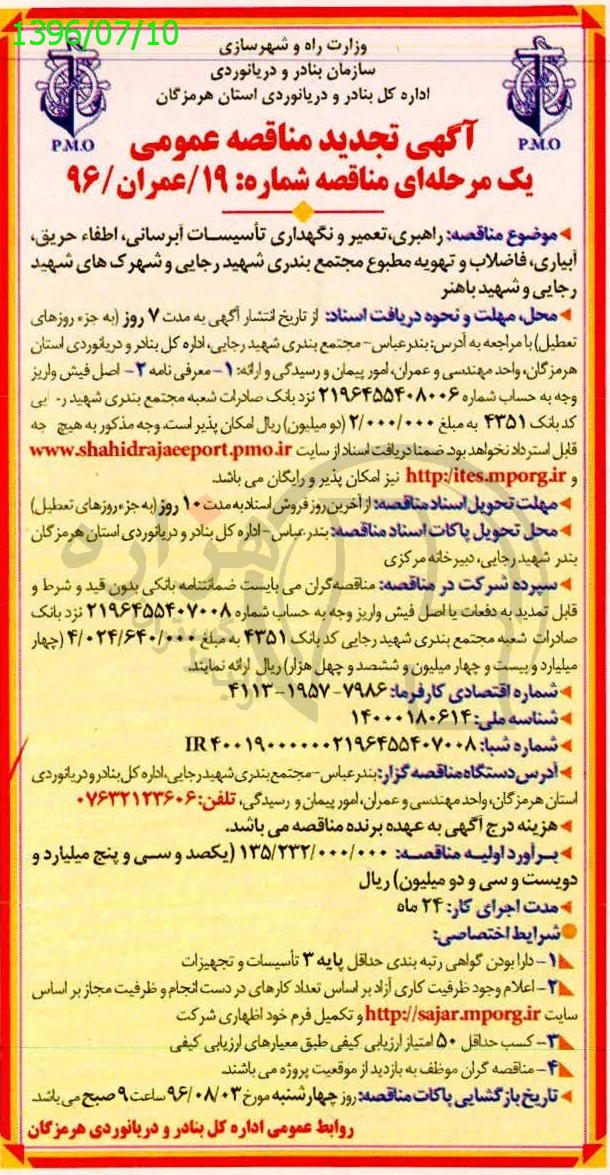 1396/07/10
وزارت راه و شهرسازی
سازمان بنادر و دریانوردی
اداره کل بنادر و دریانوردی استان هرمزگان
P.M.O
P.M.O
آگهی تجدید مناقصه عمومی
یک مرحله‌ای مناقصه شماره: ۱۹/عمران/۹۶
موضوع مناقصه: راهبری، تعمیر و نگهداری تأسیسات آبرسانی، اطفاء حریق،
آبیاری، فاضلاب و تهویه مطبوع مجتمع بندری شهید رجایی و شهرک های شهید
رجایی و شهید باهنر
محل، مهلت و نحوه دریافت اسناد: از تاریخ انتشار آگهی به مدت ۷ روز (به جزء روزهای
تعطیل) با مراجعه به آدرس: بندرعباس- مجتمع بندری شهید رجایی، اداره کل بنادر و دریانوردی استان
هرمزگان، واحد مهندسی و عمران، امور پیمان و رسیدگی و ارائه: ۱- معرفی نامه ۲- اصل فیش واریز
وجه به حساب شماره ۲۱۹۶۴۵۵۴۰۸۰۰۶ نزد بانک صادرات شعبه مجتمع بندری شهید
کد بانک ۴۳۵۱ به مبلغ ۲/۰۰۰/۰۰۰ (دو میلیون) ریال امکان پذیر است. وجه مذکور به هیچ
قابل استرداد نخواهد بود. ضمنا دریافت اسناد از سایت www.shahidrajaeeport.pmo.ir
و http:/ites.mporg.ir نیز امکان پذیر و رایگان می باشد.
مهلت تحویل اسناد مناقصه: از آخرین روز فروش اسناد به مدت ۱۰ روز (به جزء روزهای تعطیل)
محل تحویل پاکات اسناد مناقصه: بندرعباس- اداره کل بنادر و دریانوردی استان هرمزگان
بندر شهید رجایی، دبیرخانه مرکزی
سپرده شرکت در مناقصه: مناقصه‌گران می بایست ضمانتنامه بانکی بدون قید و شرط و
قابل تمدید به دفعات یا اصل فیش واریز وجه به حساب شماره ۲۱۹۶۴۵۵۴۰۷۰۰۸ نزد بانک
صادرات شعبه مجتمع بندری شهید رجایی کد بانک ۴۳۵۱ به مبلغ ۴/۰۲۴/۶۴۰/۰۰۰ (چهار
میلیارد و بیست و چهار میلیون و ششصد و چهل هزار) ریال ارائه نمایند.
شماره اقتصادی کارفرما: ۷۹۸۶-۱۹۵۷-۴۱۱۳
شناسه ملی: ۱۴۰۰۰۱۸۰۶۱۴
شماره شبا: IR ۴۰۰۱۹۰۰۰۰۰۰۰۲۱۹۶۴۵۵۴۰۷۰۰۸
آدرس دستگاه مناقصه گزار: بندرعباس- مجتمع بندری شهید رجایی، اداره کل بنادر و دریانوردی
استان هرمزگان، واحد مهندسی و عمران، امور پیمان و رسیدگی، تلفن: ۰۷۶۳۲۱۲۳۶۰۶
هزینه درج آگهی به عهده برنده مناقصه می باشد.
برآورد اولیه مناقصه: ۱۳۵/۲۳۲/۰۰۰/۰۰۰ (یکصد و سی و پنج میلیارد و
دویست و سی و دو میلیون) ریال
مدت اجرای کار: ۲۴ ماه
شرایط اختصاصی:
۱- دارا بودن گواهی رتبه بندی حداقل پایه ۳ تأسیسات و تجهیزات
۲- اعلام وجود ظرفیت کاری آزاد بر اساس تعداد کارهای در دست انجام و ظرفیت مجاز بر اساس
سایت http://sajar.mporg.ir و تکمیل فرم خود اظهاری شرکت
۳- کسب حداقل ۵۰ امتیاز ارزیابی کیفی طبق معیارهای ارزیابی کیفی
۴- مناقصه گران موظف به بازدید از موقعیت پروژه می باشند.
تاریخ بازگشایی پاکات مناقصه: روز چهارشنبه مورخ ۹۶/۰۸/۰۳ ساعت ۹ صبح می باشد.
روابط عمومی اداره کل بنادر و دریانوردی هرمزگان